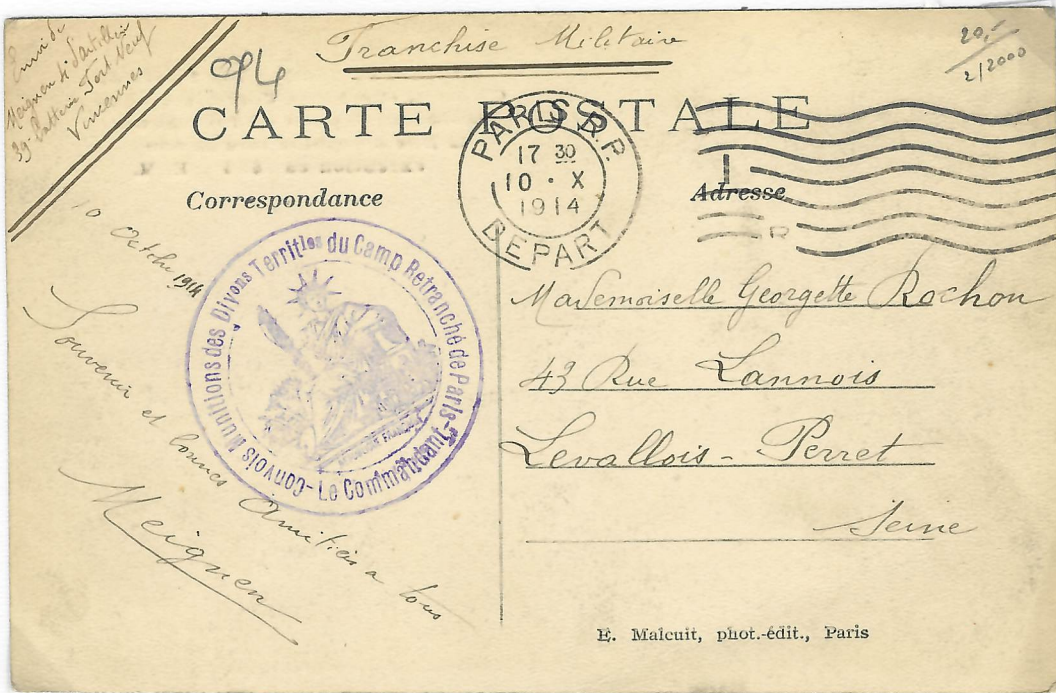 Envoi de
Meignen
39 Batterie Fort Neuf
Vincennes
Franchise Militaire
94
20,-
2/2000
CARTE POSTALE
PARIS R.P.
17 30
10 · X
1914
DEPART
Correspondance
Adresse
10 Octobre 1914
Convois Munitions des Divons Territles du Camp Retranché de Paris - Le Commandant -
Souvenir et bonnes amitiés a tous
Meignen
Mademoiselle Georgette Rochon
43 Rue Lannois
Levallois - Perret
Seine
E. Malcuit, phot.-édit., Paris